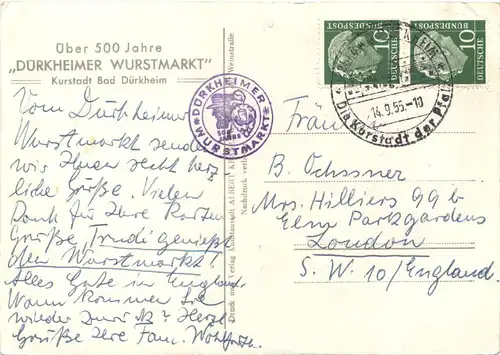 Über 500 Jahre
„DÜRKHEIMER WURSTMARKT"
Kurstadt Bad Dürkheim
Vom Dürkheimer
Wurstmarkt senden
wir Ihnen recht herz
liche Grüße. Vielen
Dank für Ihre Karten
Grüße, Trudi genießt
den Wurstmarkt!
Alles Gute in England.
Wann kommen Sie
wieder Herzl.
Grüße Ihre Fam. Wohlfarth.
DÜRKHEIMER
WURSTMARKT
500 JAHRE
Weinstraße
Nachdruck
Druck Verlag ALBERT
DEUTSCHE BUNDESPOST
10
DEUTSCHE BUNDESPOST
10
14.9.55-10
Die Kurstadt der Pfalz
B. Ochssner
Mrs. Hilliers 99 b
Elm Parkgardens
London
S. W. 10/England.